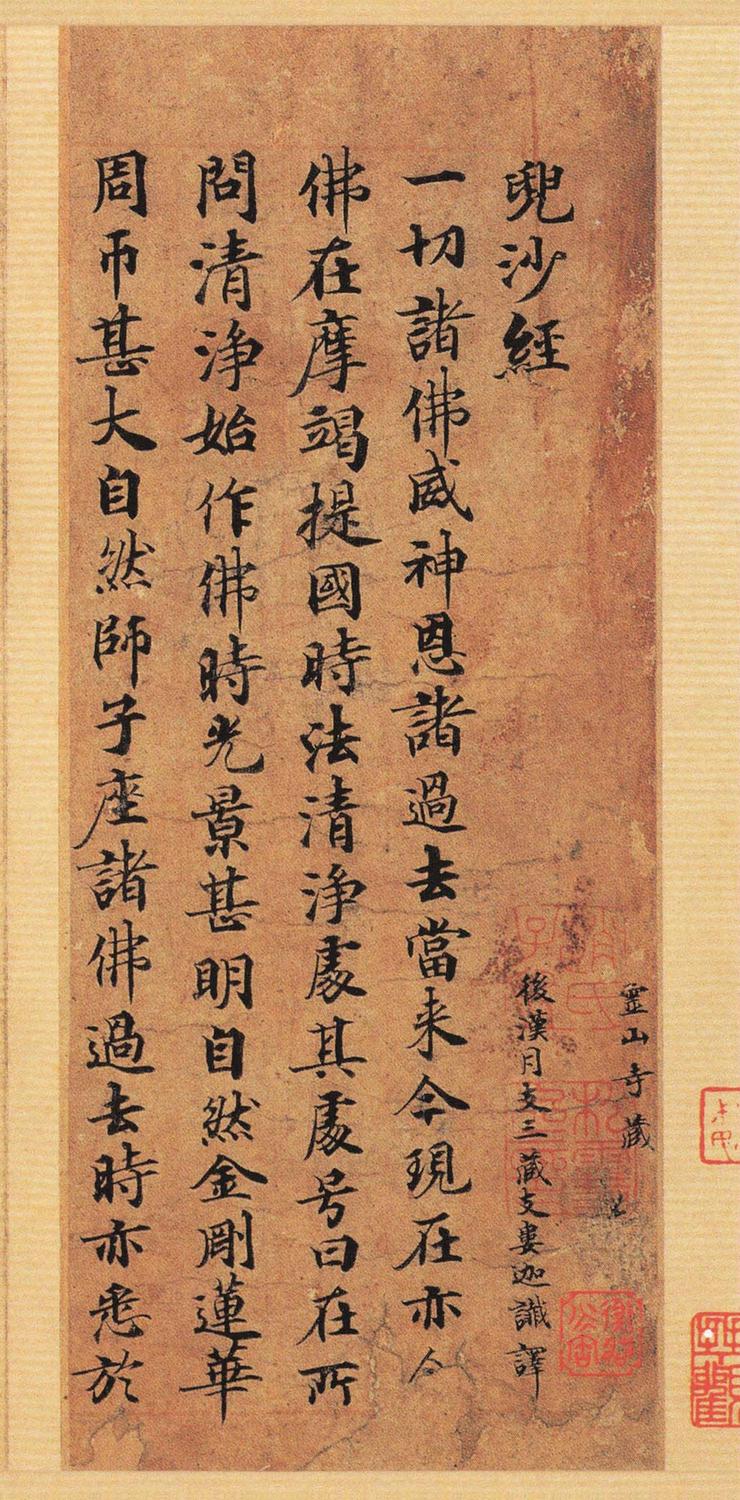 霊山寺藏
兜沙經
後漢月支三藏支婁迦讖譯
一切諸佛威神恩諸過去當来今現在亦尒
佛在摩竭提國時法清浄處其處号曰在所
問清浄始作佛時光景甚明自然金剛蓮華
周帀甚大自然師子座諸佛過去時亦悉於